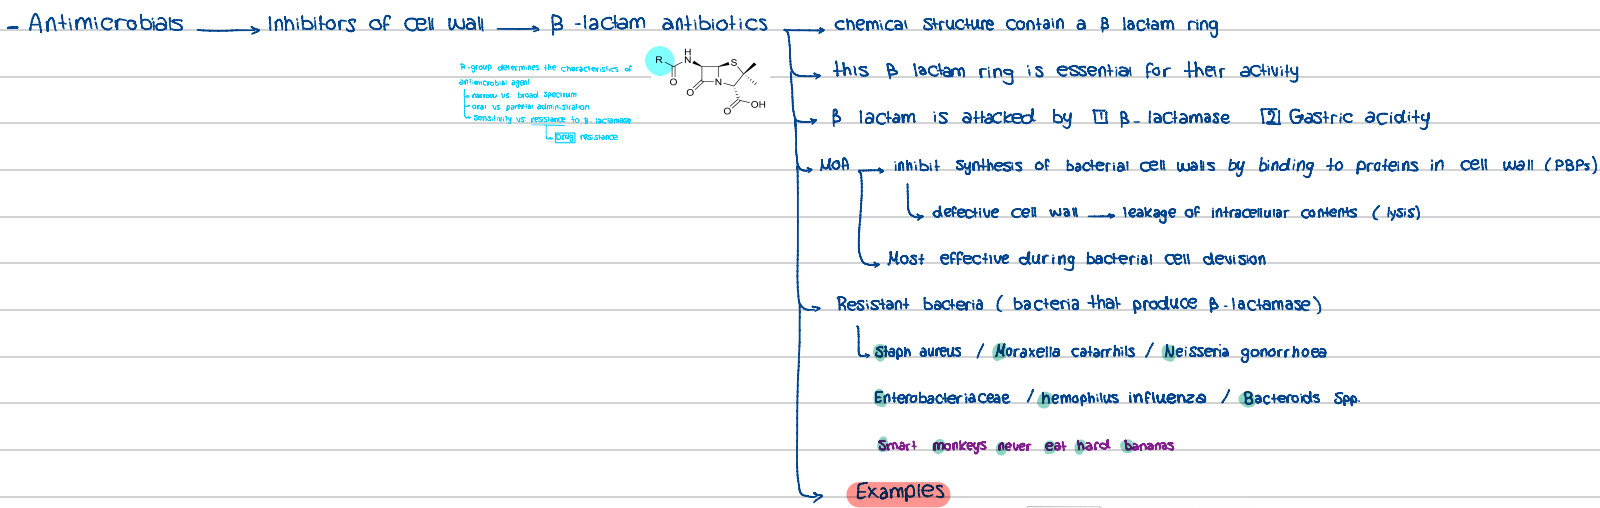 - Antimicrobials → Inhibitors of cell wall → β-lactam antibiotics → chemical structure contain a β lactam ring
R-group determines the characteristics of
antimicrobial agent
narrow vs broad spectrum
oral vs
administration
sensitivity vs resistance to β-lactamase
Drug resistance
R
H
N
O
S
N
O
O
OH
this β lactam ring is essential for their activity
β lactam is attacked by [1] β-lactamase [2] Gastric acidity
MOA → inhibit synthesis of bacterial cell walls by binding to proteins in cell wall (PBPs)
defective cell wall → leakage of intracellular contents (lysis)
Most effective during bacterial cell devision
Resistant bacteria (bacteria that produce β-lactamase)
Staph aureus / Moraxella catarrhils / Neisseria gonorrhoea
Enterobacteriaceae / hemophilus influenza / Bacteroids Spp.
Smart monkeys never eat hard bananas
Examples